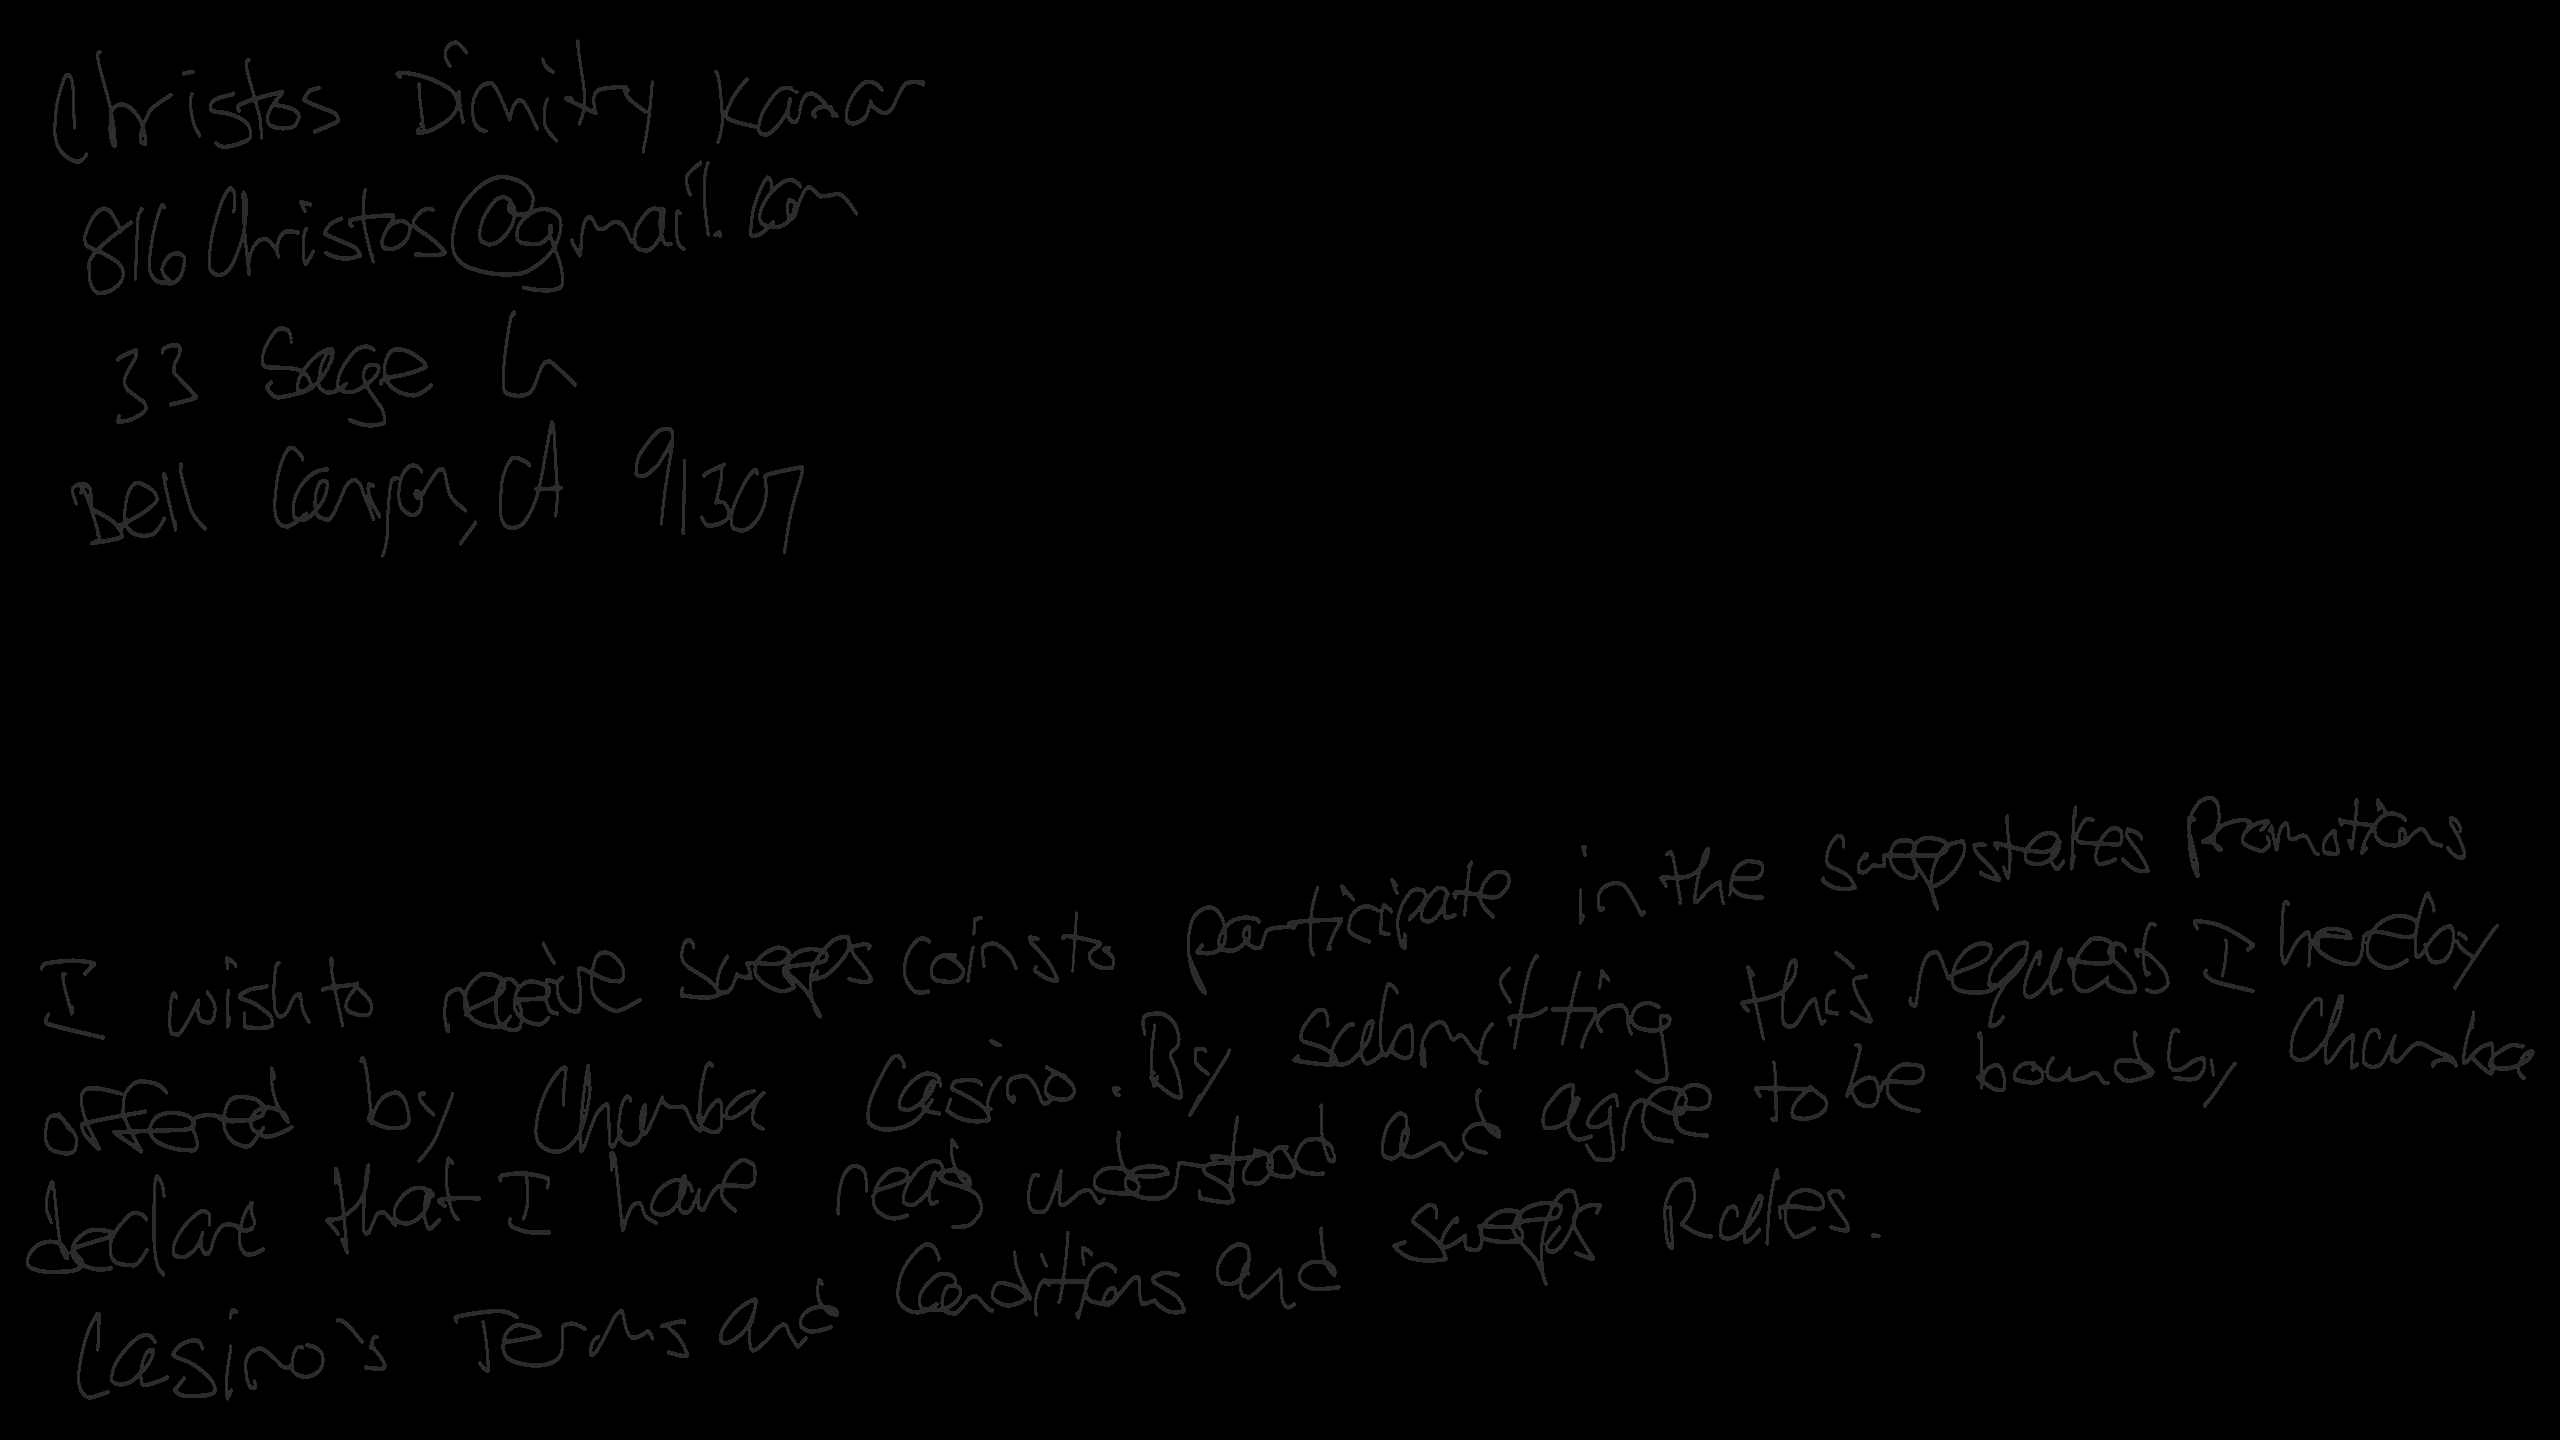 Christos Dimitry
816Christos@gmail.com
33 Sage Ln
Bell Canyon, CA 91307
I wish to receive sweeps coins to participate in the sweepstakes promotions
offered by Chumba Casino. By submitting this request I hereby
declare that I have read understood and agree to be bound by Chumba
Casino's Terms and Conditions and sweeps Rules.